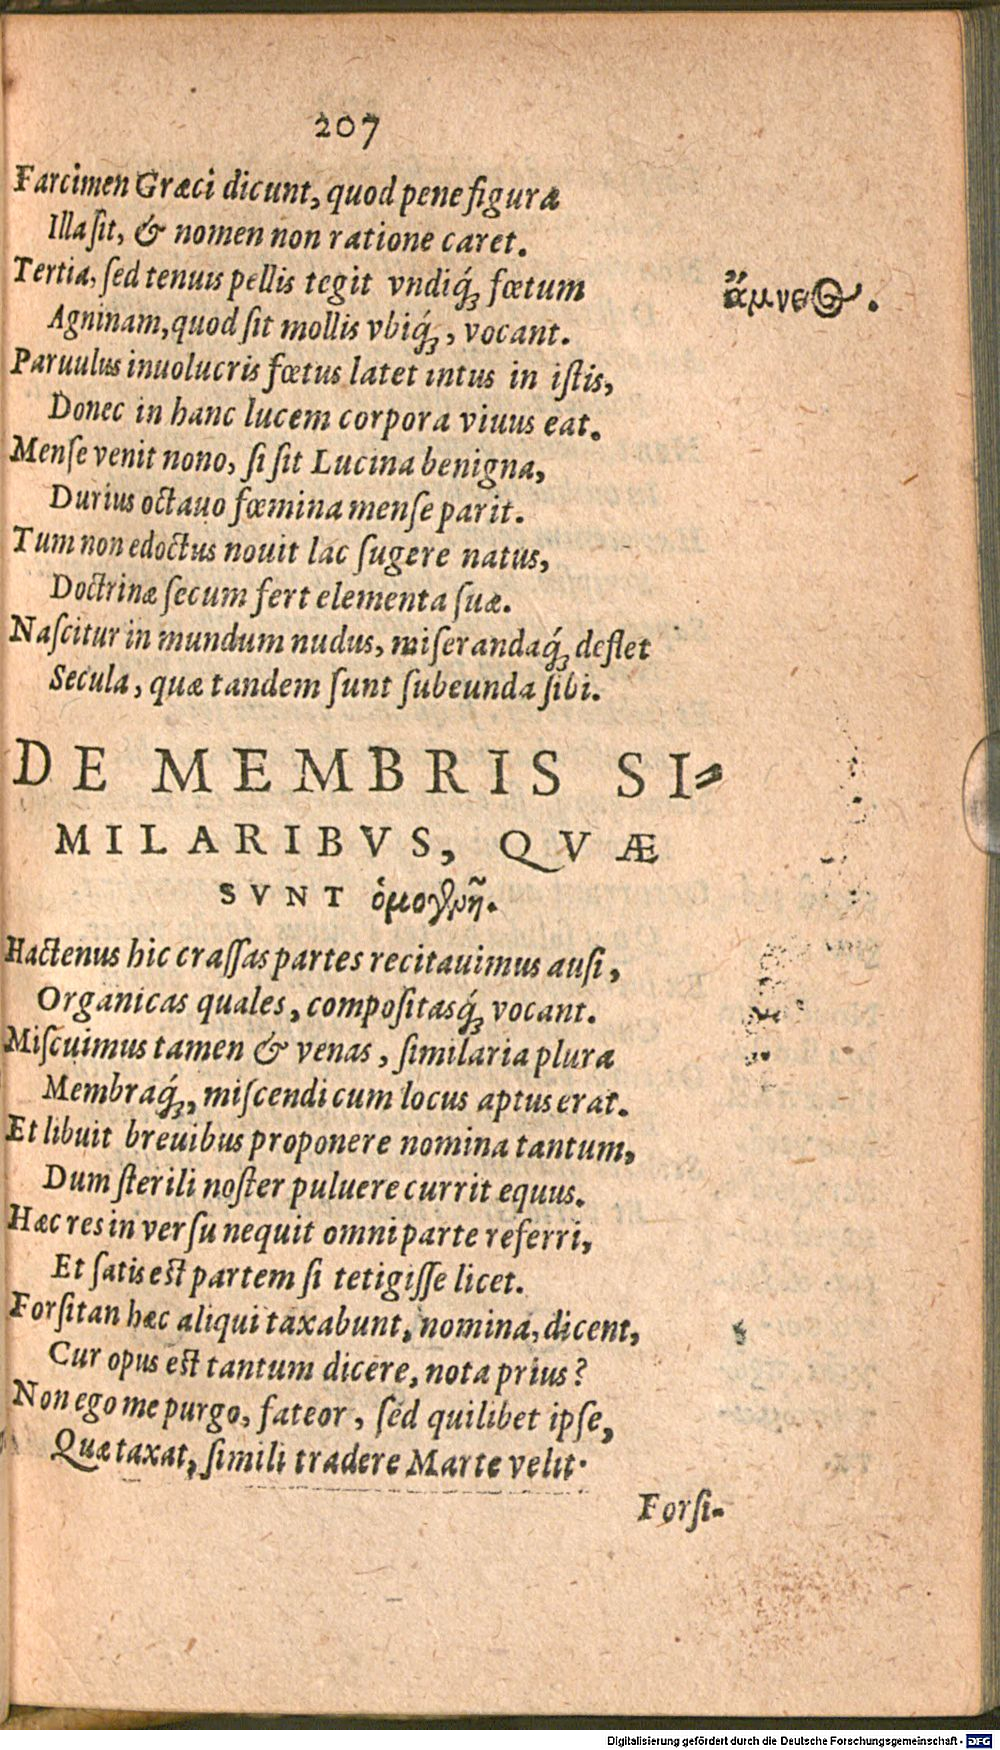 207
Farcimen Græci dicunt, quod pene figura
Illa ſit, & nomen non ratione caret.
Tertia, ſed tenuis pellis tegit vndiq́; fœtum
ἄμνειος.
Agninam, quod ſit mollis vbiq́;, vocant.
Paruulus inuolucris fœtus latet intus in iſtis,
Donec in hanc lucem corpora viuus eat.
Menſe venit nono, ſi ſit Lucina benigna,
Durius octauo fœmina menſe parit.
Tum non edoctus nouit lac ſugere natus,
Doctrinæ ſecum fert elementa ſuæ.
Naſcitur in mundum nudus, miſerandaq́; deflet
Secula, quæ tandem ſunt ſubeunda ſibi.
DE MEMBRIS SI-
MILARIBVS, QVÆ
SVNT ὁμογενῆ.
Hactenus hic craſſas partes recitauimus auſi,
Organicas quales, compoſitasq́; vocant.
Miſcuimus tamen & venas, ſimilaria plura
Membraq́;, miſcendi cum locus aptus erat.
Et libuit breuibus proponere nomina tantum,
Dum ſterili noſter puluere currit equus.
Hæc res in verſu nequit omni parte referri,
Et ſatis eſt partem ſi tetigiſſe licet.
Forſitan hæc aliqui taxabunt, nomina, dicent,
Cur opus eſt tantum dicere, nota prius?
Non ego me purgo, fateor, ſed quilibet ipſe,
Quæ taxat, ſimili tradere Marte velit.
Forſi-
Digitalisierung gefördert durch die Deutsche Forschungsgemeinschaft - DFG